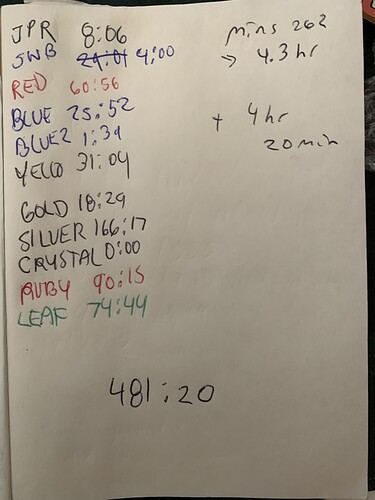 JPR 8:06
JWB 24:01 4:00
RED 60:56
BLUE 25:52
BLUE2 1:39
YELLO 31:09
GOLD 18:29
SILVER 166:17
CRYSTAL 0:00
RUBY 90:15
LEAF 74:44
481:20
mins 262
→ 4.3 hr
+ 4 hr
20 min